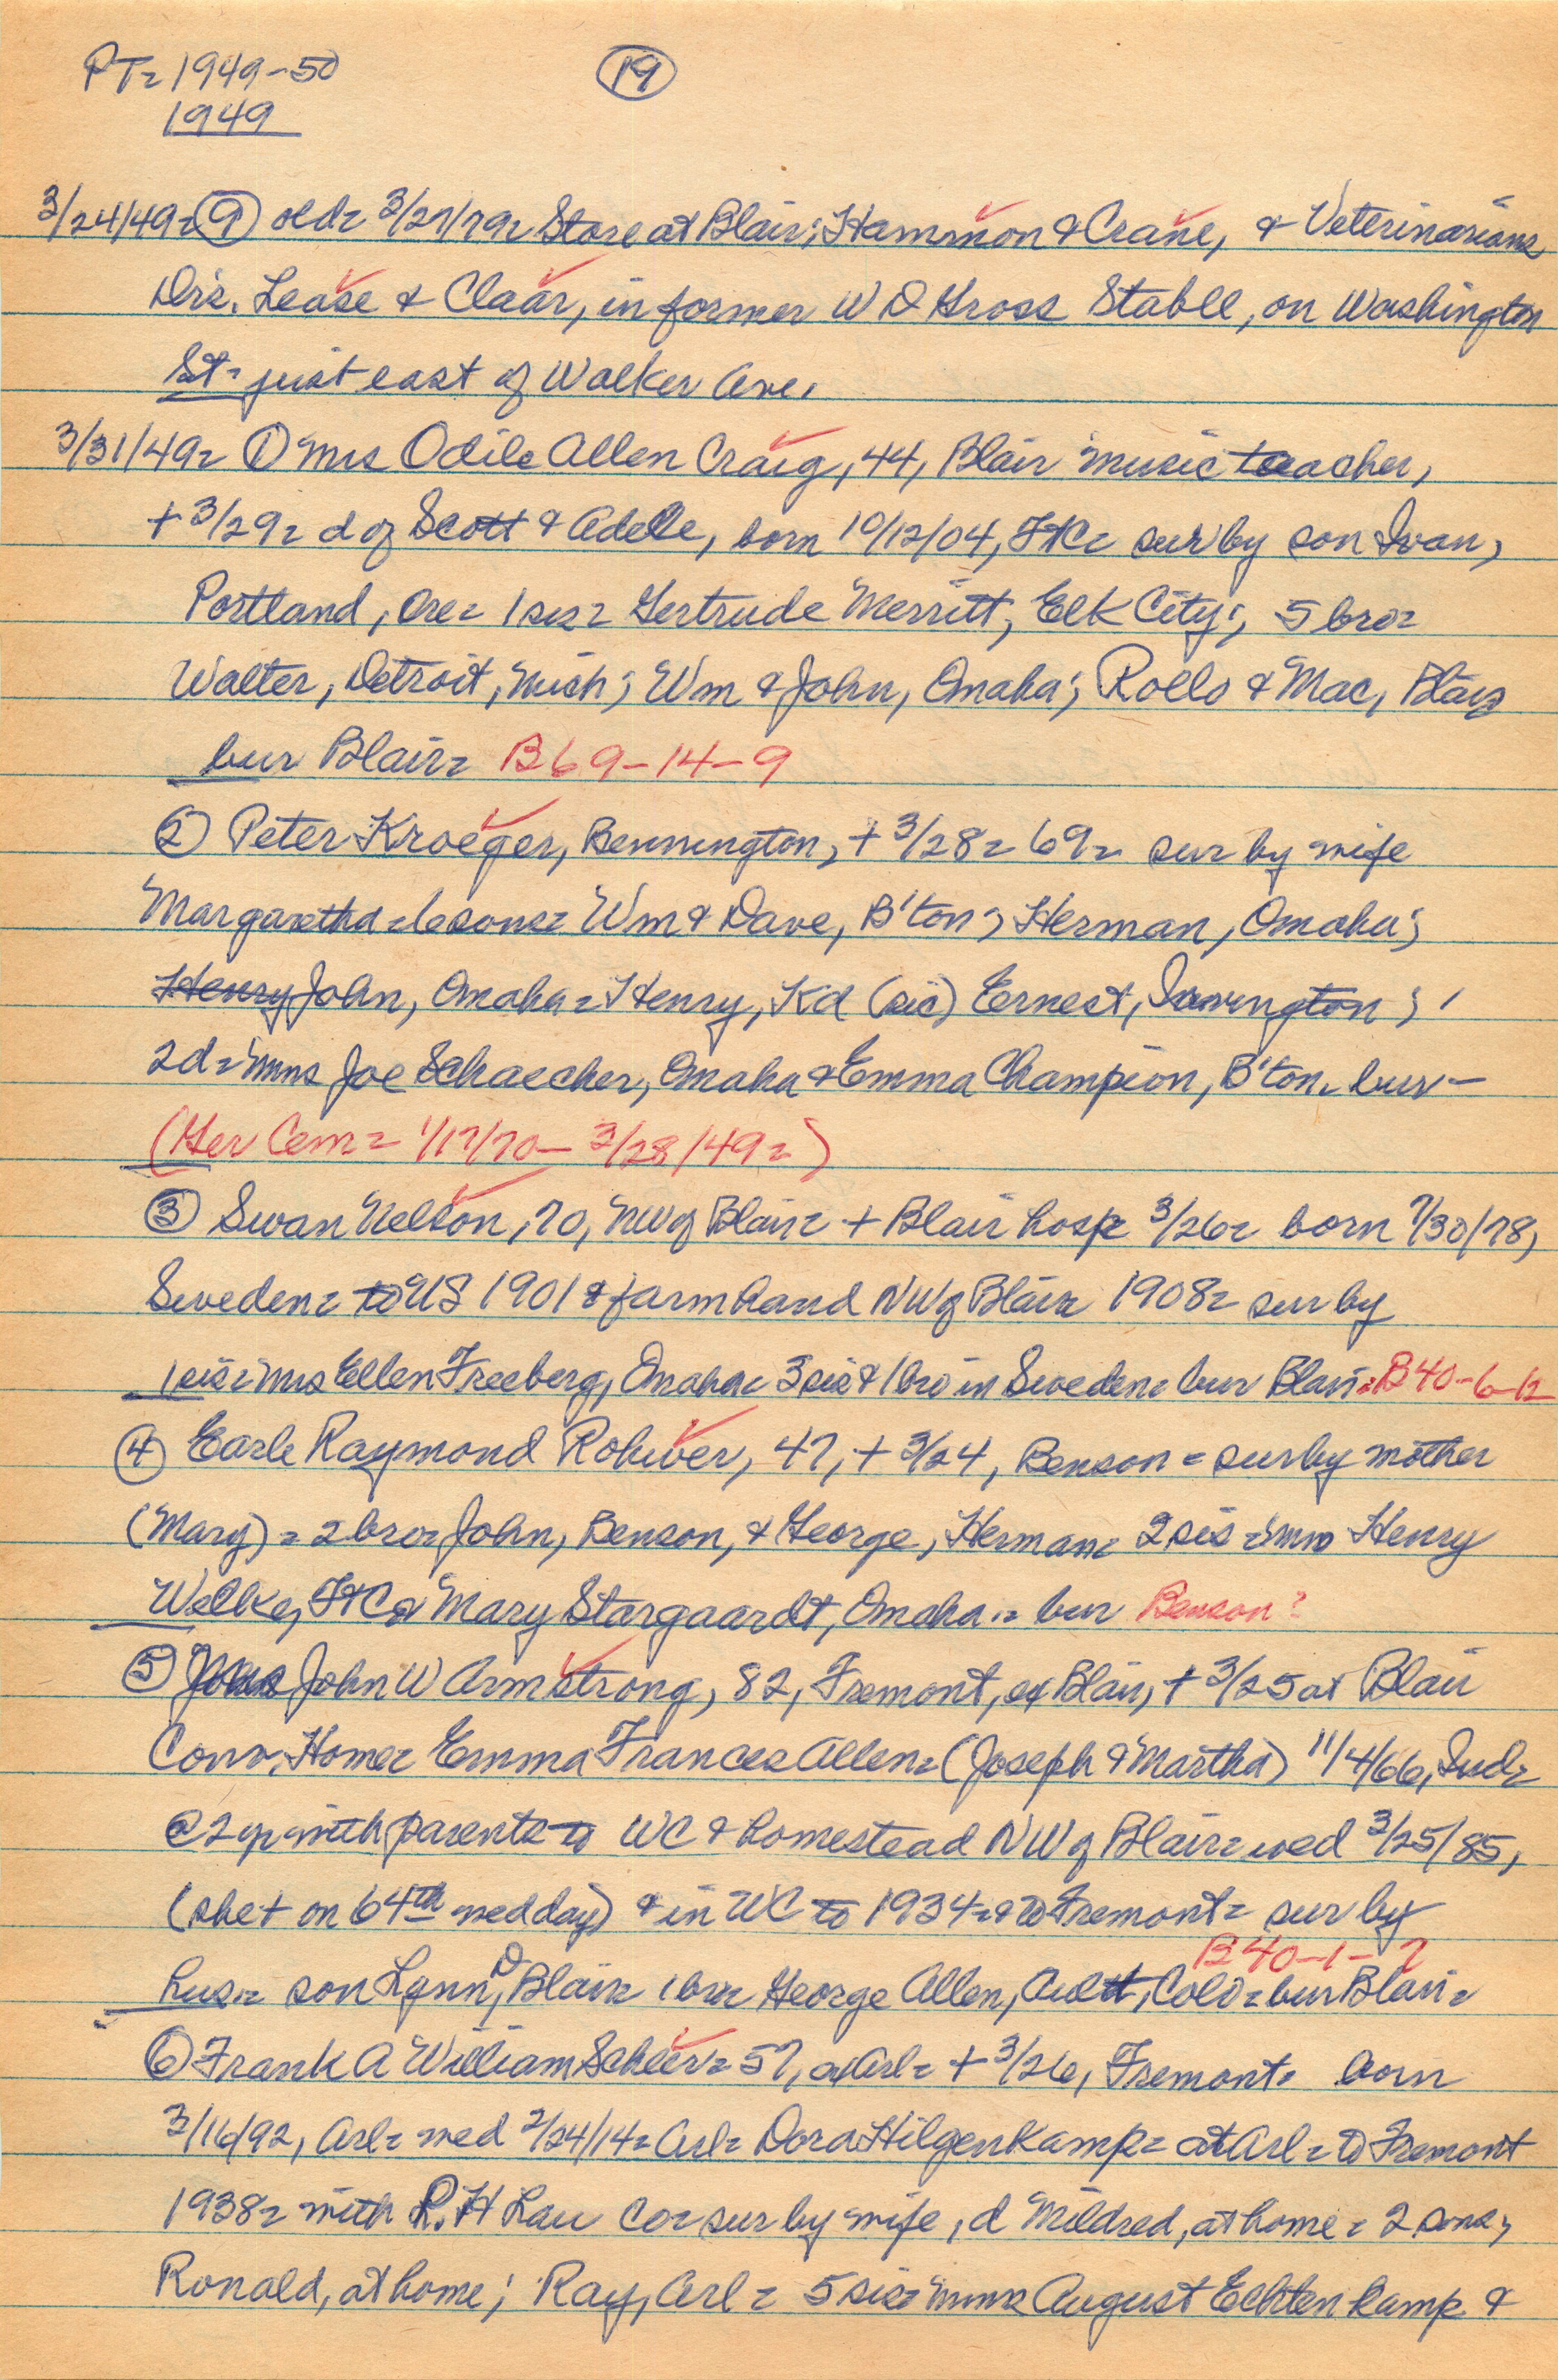 PT= 1949-50
(19)
1949
3/24/49= (9) old= 3/27/79= Store at Blair; Hammon & Crane, & Veterinarians
Drs. Lease & Claar, in former W D Gross Stable, on Washington
St= just east of Walker Ave.
3/31/49= (1) Mrs Odile Allen Craig, 44, Blair music teacher,
+ 3/29= d of Scott & Adelle, born 10/12/04, FtC= sur by son Ivan,
Portland, Ore= 1 sis= Gertrude Merritt, Elk City; 5 bro=
Walter, Detroit, Mich; Wm & John, Omaha; Rollo & Mac, Blair
bur Blair= B69-14-9
(2) Peter Kroeger, Bennington, + 3/28= 69= sur by wife
Margaretha= 6 sons= Wm & Dave, B'ton; Herman, Omaha;
Henry John, Omaha= Henry, Kd (sic) Ernest, ;
2d= Mms Joe Schaecher, Omaha & Emma Champion, B'ton= bur—
(Ger Cem= 1/17/70— 3/28/49=)
(3) Swan Nelson, 70, NW of Blair= + Blair hosp= 3/26= born 7/30/78,
Sweden= to US 1901 & farm hand NW of Blair= 1908= sur by
1 sis= Mrs Ellen Freeberg, Omaha= 3 sis & 1 bro in Sweden= bur Blair= B40-6-12
(4) Earle Raymond Rohwer, 47, + 3/24, Benson= sur by mother
(Mary)= 2 bro= John, Benson, & George, Herman= 2 sis= Mms Henry
Welke, FtC & Mary Stargaardt, Omaha.= bur Benson?
(5) John W Armstrong, 82, Fremont, of Blair, + 3/25 at Blair
Conv. Home= Emma Frances Allen= (Joseph & Martha) 11/4/66, Ind=
@2 yr with parents to WC & homestead NW of Blair= wed 3/25/85,
(she + on 64th wed day) & in WC to 1934= & to Fremont= sur by
B40-1-7
hus= son Lynn D, Blair= 1 bro= George Allen, Ault, Colo= bur Blair=
(6) Frank A William Scheer= 57, of Arl= + 3/26, Fremont= born
3/16/92, Arl= wed 2/24/14= Arl= Dora Hilgenkamp= at Arl= to Fremont
1938= with R. H Lau Co= sur by wife, d Mildred, at home= 2 sons;
Ronald, at home; Ray, Arl= 5 sis= Mms August Echtenkamp &